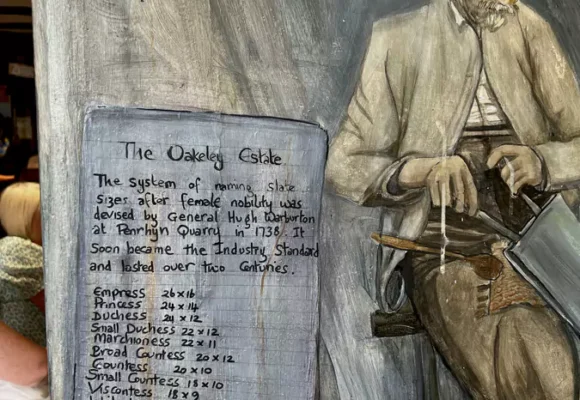 The Oakeley Estate
The system of naming slate
sizes after female nobility was
devised by General Hugh Warburton
at Penrhyn Quarry in 1738. It
soon became the Industry Standard
and lasted over two Centuries.
Empress 26 x 16
Princess 24 x 14
Duchess 24 x 12
Small Duchess 22 x 12
Marchioness 22 x 11
Broad Countess 20 x 12
Countess 20 x 10
Small Countess 18 x 10
Viscontess 18 x 9